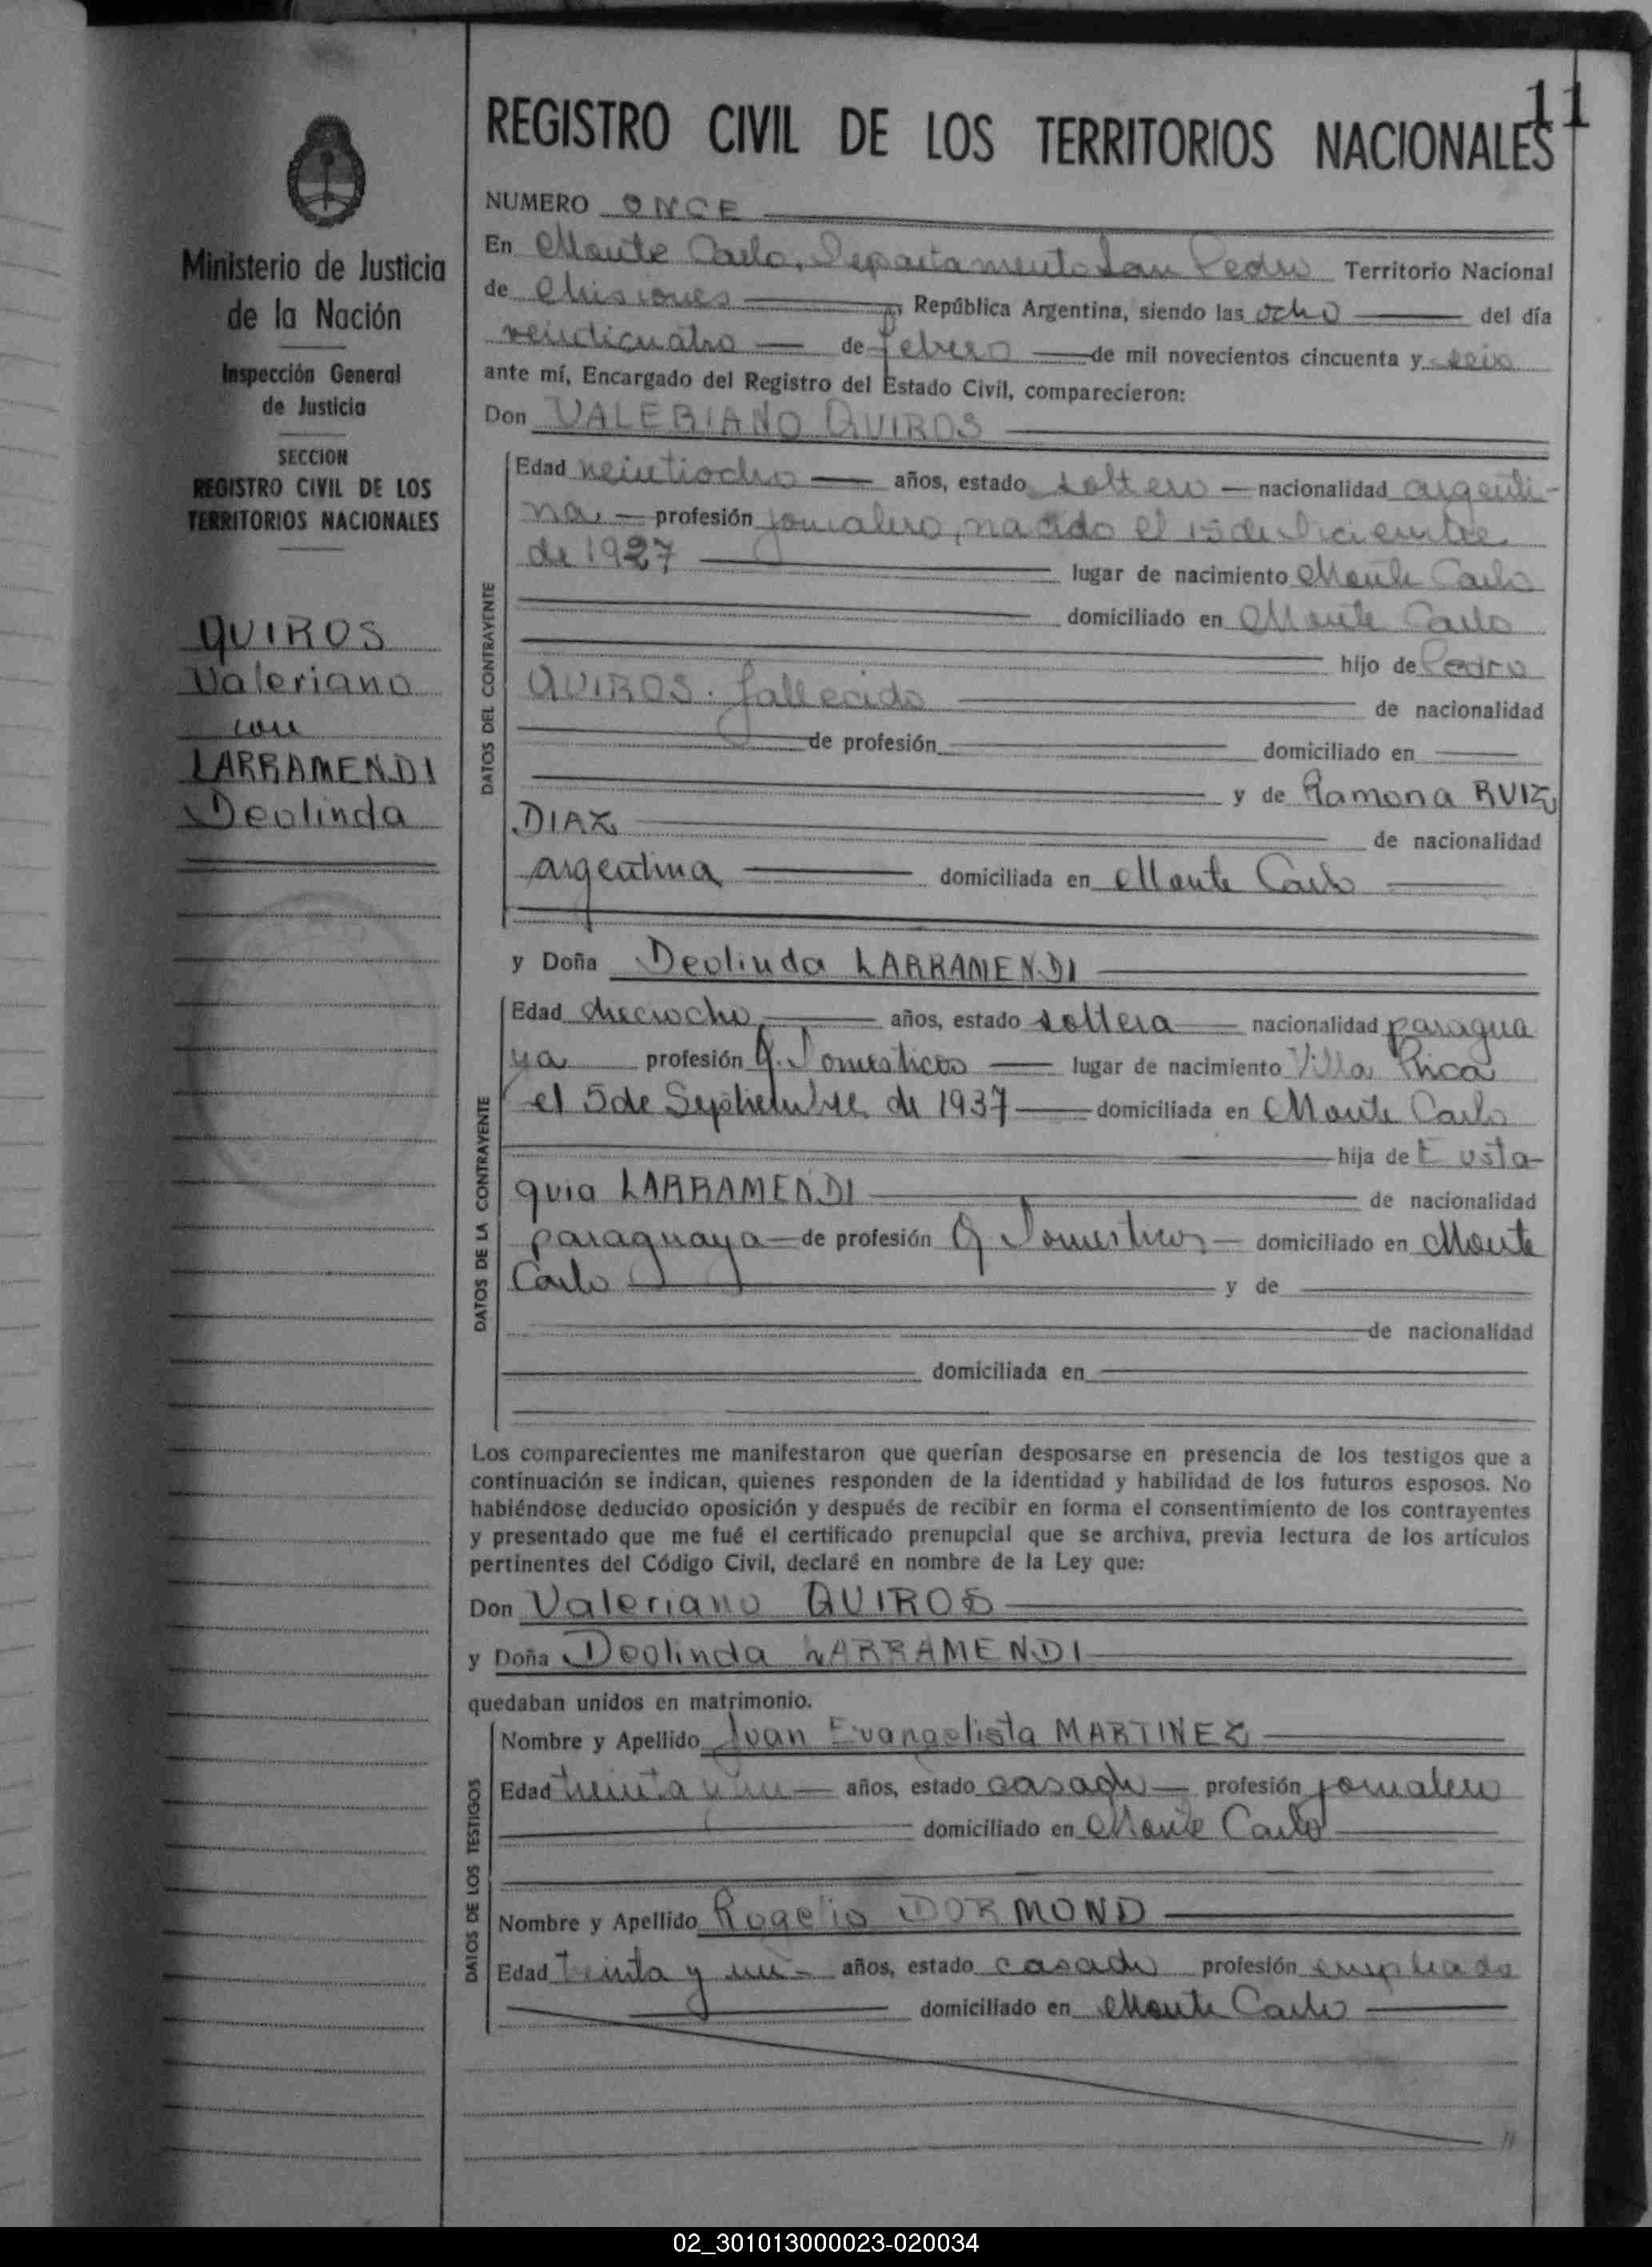 11
REGISTRO CIVIL DE LOS TERRITORIOS NACIONALES
Ministerio de Justicia
de la Nación
Inspección General
de Justicia
SECCION
REGISTRO CIVIL DE LOS
TERRITORIOS NACIONALES
QUIROS
Valeriano
con
LARRAMENDI
Deolinda
NUMERO ONCE
En Monte Carlo, Departamento San Pedro Territorio Nacional
de Misiones República Argentina, siendo las ocho del día
veinticuatro de febrero de mil novecientos cincuenta y seis
ante mí, Encargado del Registro del Estado Civil, comparecieron:
Don VALERIANO QUIROS
DATOS DEL CONTRAYENTE
Edad veintiocho años, estado soltero nacionalidad argenti-
na profesión jornalero, nacido el 15 de Diciembre
de 1927 lugar de nacimiento Monte Carlo
domiciliado en Monte Carlo
hijo de Pedro
QUIROS. fallecido de nacionalidad
de profesión domiciliado en
y de Ramona RUIZ
DIAZ de nacionalidad
argentina domiciliada en Monte Carlo
y Doña Deolinda LARRAMENDI
DATOS DE LA CONTRAYENTE
Edad dieciocho años, estado soltera nacionalidad paragua
ya profesión Q. Domesticos lugar de nacimiento Villa Rica
el 5 de Septiembre de 1937 domiciliada en Monte Carlo
hija de Eusta-
quia LARRAMENDI de nacionalidad
paraguaya de profesión Q. Domesticos domiciliado en Monte
Carlo y de
de nacionalidad
domiciliada en
Los comparecientes me manifestaron que querían desposarse en presencia de los testigos que a
continuación se indican, quienes responden de la identidad y habilidad de los futuros esposos. No
habiéndose deducido oposición y después de recibir en forma el consentimiento de los contrayentes
y presentado que me fué el certificado prenupcial que se archiva, previa lectura de los artículos
pertinentes del Código Civil, declaré en nombre de la Ley que:
Don Valeriano QUIROS
y Doña Deolinda LARRAMENDI
quedaban unidos en matrimonio.
DATOS DE LOS TESTIGOS
Nombre y Apellido Juan Evangelista MARTINEZ
Edad treinta y un años, estado casado profesión jornalero
domiciliado en Monte Carlo
Nombre y Apellido Rogelio DORMOND
Edad treinta y un años, estado casado profesión empleado
domiciliado en Monte Carlo
02_301013000023-020034